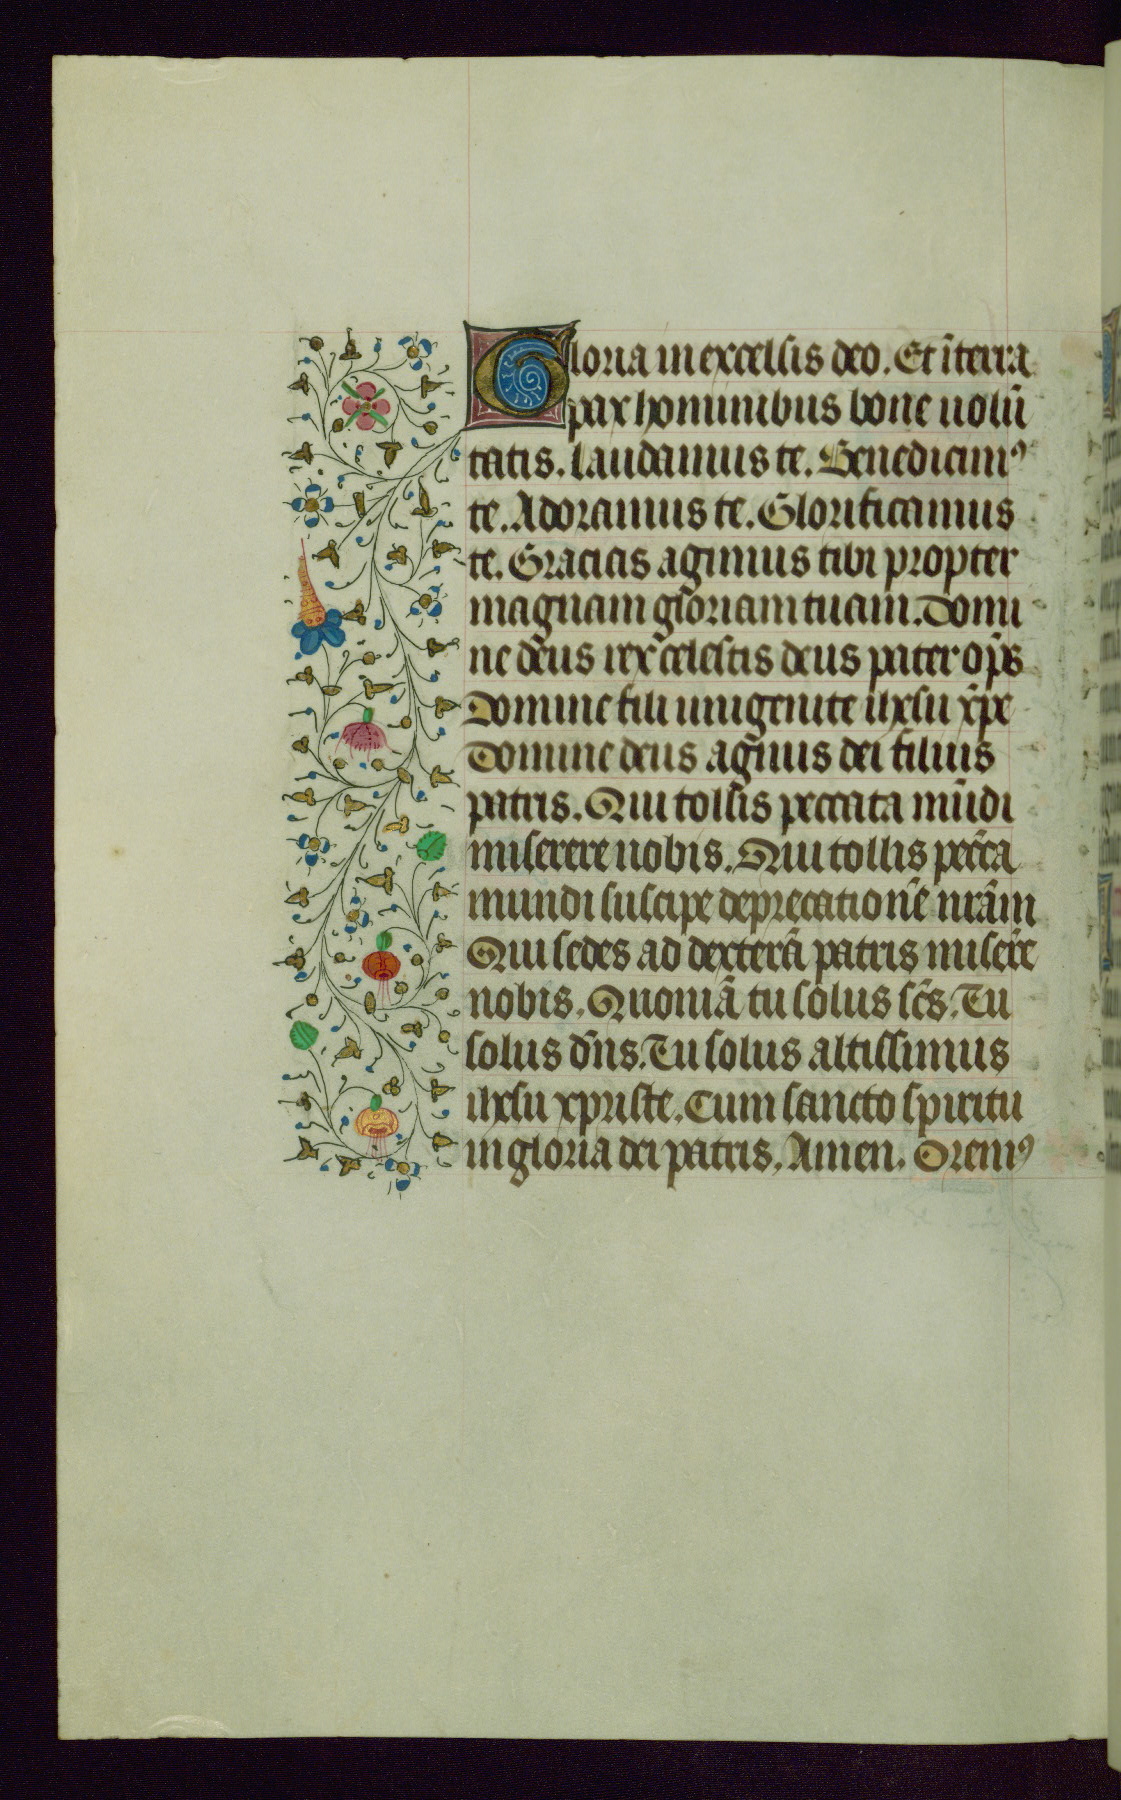 Gloria in excelsis deo. Et ī terra
pax hominibus bone uolū
tatis. laudamus te. Benedicimꝰ
te. Adoramus te. Glorificamus
te. Gracias agimus tibi propter
magnam gloriam tuam. Domi
ne deus rex celestis deus pater op̄s
Domine fili unigenite ihesu xp̄e
Domine deus agnus dei filius
patris. Qui tollis peccata mūdi
miserere nobis. Qui tollis pecc̄a
mundi suscipe deprecationē nr̄am
Qui sedes ad dexterā patris miser̄e
nobis. Quoniā tu solus sc̄s. Tu
solus dn̄s. Tu solus altissimus
ihesu xpriste. Cum sancto spiritu
in gloria dei patris. Amen. Oremꝰ